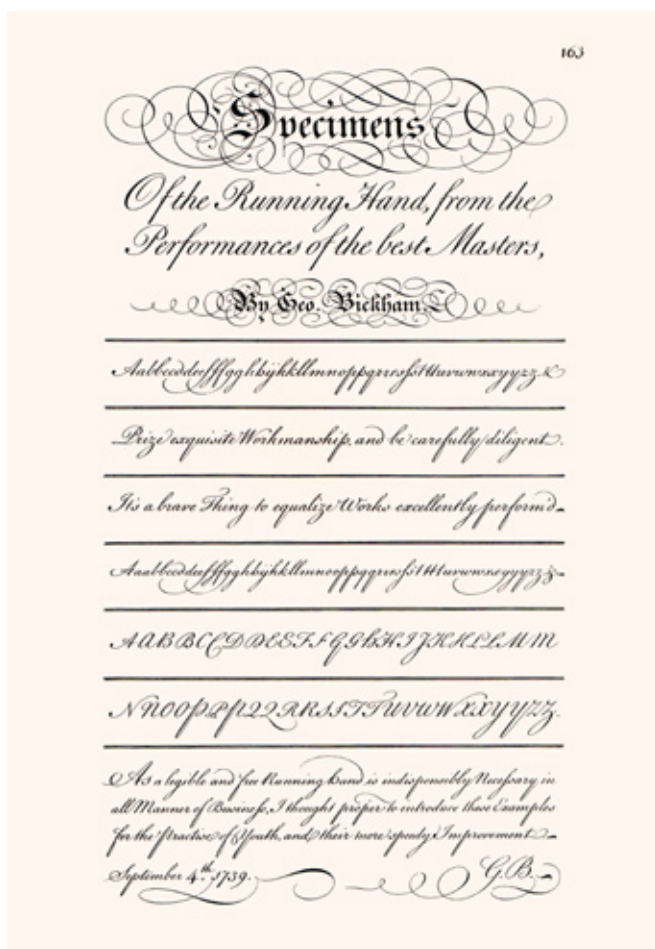 163
Specimens
Of the Running Hand, from the
Performances of the best Masters,
By Geo. Bickham.
Aabbccddeefffgghhijkkllmnoppqrrsstttuvwwxyyzz &
Prize exquisite Workmanship, and be carefully diligent.
It's a brave Thing to equalize Works excellently perform'd
Aaabbccddeefffgghhijkkllmnoppqrrsstttuvwwxyyyzz &
AABBCCDDEEFFGGHHIJKKLLMM
NNOOPPPQQRRSSTTUVWWXXYYZZ
As a legible and free Running hand is indispensibly Necessary in
all Manner of Business, I thought proper to introduce these Examples
for the Practise of Youth, and their more speedy Improvement
September 4.th 1739. G.B.